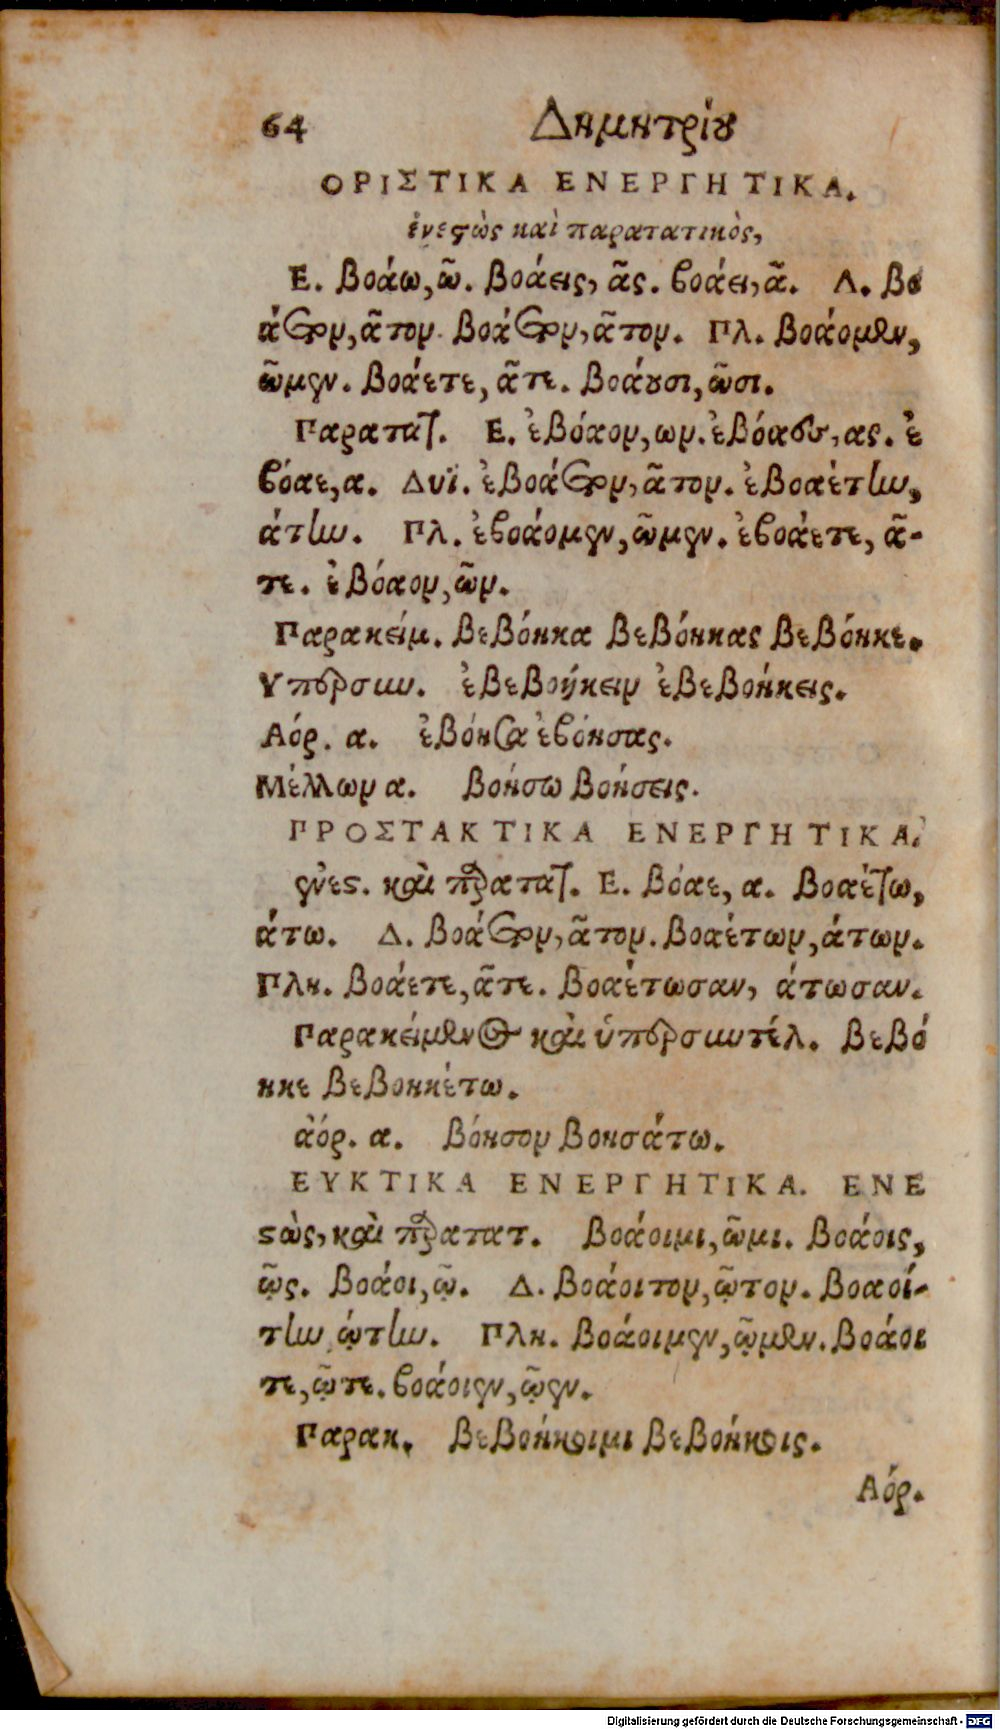 64 Δημητρίου
ΟΡΙΣΤΙΚΑ ΕΝΕΡΓΗΤΙΚΑ.
ἐνεστὼς καὶ παρατατικὸς,
Ε. βοάω, ῶ. βοάεις, ᾶς. βοάει, ᾶ. Δ. βο
άετον, ᾶτον. βοάετον, ᾶτον. Πλ. βοάομεν,
ῶμεν. βοάετε, ᾶτε. βοάουσι, ῶσι.
Παρατατ. Ε. ἐβόαον, ων. ἐβόαες, ας. ἐ
βόαε, α. Δυϊ. ἐβοάετον, ᾶτον. ἐβοαέτην,
άτην. Πλ. ἐβοάομεν, ῶμεν. ἐβοάετε, ᾶ-
τε. ἐβόαον, ῶν.
Παρακείμ. βεβόηκα βεβόηκας βεβόηκε.
Υπερσυν. ἐβεβοήκειν ἐβεβοήκεις.
Αόρ. α. ἐβόησα ἐβόησας.
Μέλλων α. βοήσω βοήσεις.
ΠΡΟΣΤΑΚΤΙΚΑ ΕΝΕΡΓΗΤΙΚΑ.
ἐνεστ. καὶ παρατατ. Ε. βόαε, α. βοαέτω,
άτω. Δ. βοάετον, ᾶτον. βοαέτων, άτων.
Πλη. βοάετε, ᾶτε. βοαέτωσαν, άτωσαν.
Παρακείμενος καὶ ὑπερσυντέλ. βεβό
ηκε βεβοηκέτω.
ἀόρ. α. βόησον βοησάτω.
ΕΥΚΤΙΚΑ ΕΝΕΡΓΗΤΙΚΑ. ΕΝΕ
στὼς, καὶ παρατατ. βοάοιμι, ῶμι. βοάοις,
ῷς. βοάοι, ῷ. Δ. βοάοιτον, ῷτον. βοαοί-
την, ῴτην. Πλη. βοάοιμεν, ῷμεν. βοάοι
τε, ῷτε. βοάοιεν, ῷεν.
Παρακ. βεβοήκοιμι βεβοήκοις.
Αόρ.
Digitalisierung gefördert durch die Deutsche Forschungsgemeinschaft - DFG